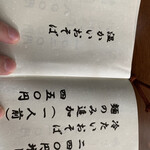 温かいおそば
冷たいおそば
麺のみ追加(一人前)
四五〇円